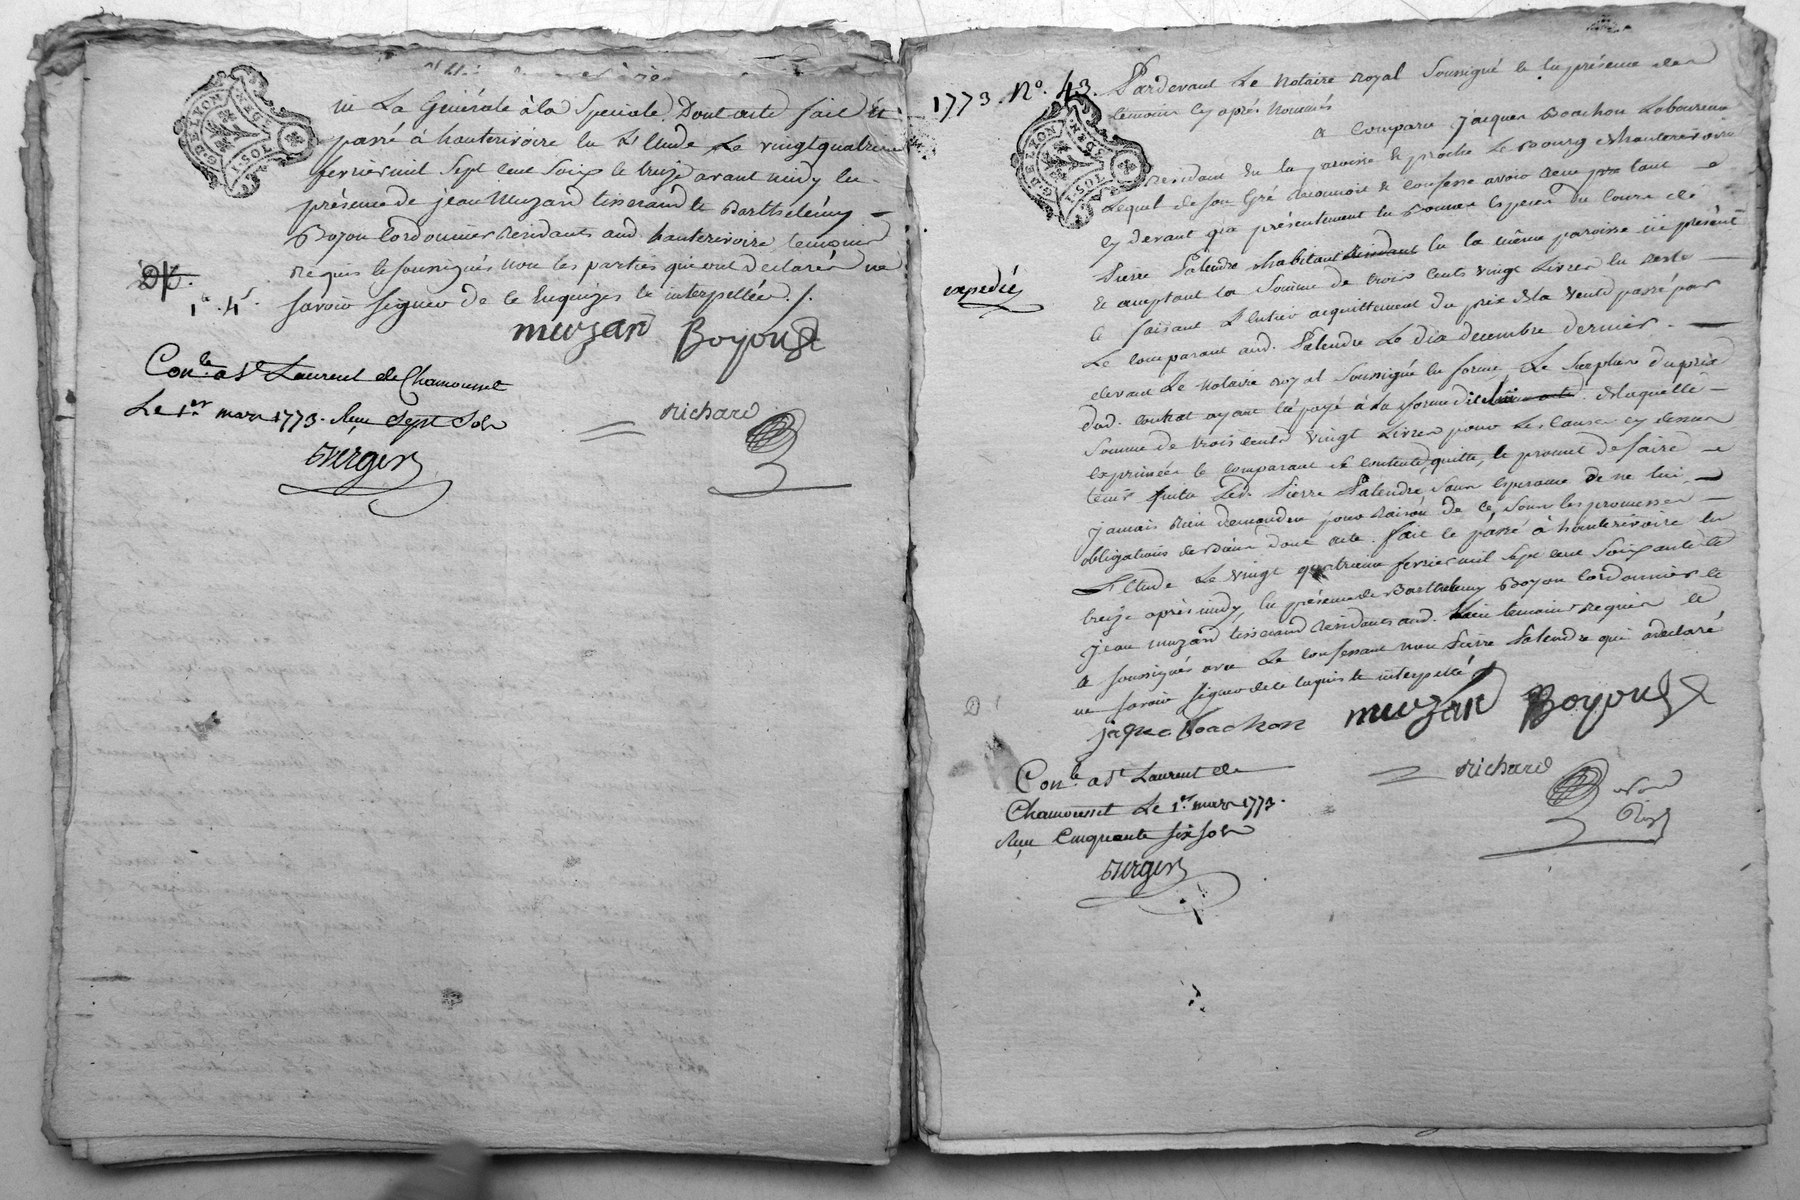 G. DE LYON GEN. 1. SOL
ni La Générale à la Speciale. Dont acte fait Et
passé à hauterivoire En L'Etude Le vingtquatre
fevrier mil Sept cent Soix.te treize avant midy En
présence de jean Muzard tisserand & Barthelémy
Boyon Cordonnier residants aud. hauterivoire temoins
requis & soussignés non les parties qui ont declarées ne
savoir signer de ce Enquizes & interpellées ./.
muzard Boyon
Con.lé a St Laurent de Chamousset
Le 1.er mars 1773. Reçu Sept Sols
richard
verger
1773. N.o 43.
expedié
G. DE LYON GEN. 1. SOL
Pardevant Le Notaire royal Soussigné & En présence des
temoins Cy après Nommés
a Comparu jacques Bachon Laboureur
residant En la paroisse & proche Le Bourg d'hauterivoire
Lequel de son Gré reconnoit & Confesse avoir reçu tant
Cy devant qu'a présentement En Bonnes Especes du Cours de
Pierre Palendre habitant En la même paroisse ici présent
& acceptant La Somme de trois Cents vingt Livres En reste
& faisant L'Entier acquittement du prix de la vente passé par
Le Comparant aud. Palendre Le dix decembre dernier.
devant Le Notaire royal Soussigné En forme, Le Surplus du prix
dud. Contrat ayant été payé à la forme d'icelui. De laquelle
Somme de trois Cents vingt Livres pour Les Causes Cy dessus
Exprimées le Comparant se Contente, quitte, & promet de faire
tenir quitte Led. Pierre Palendre, Sans Esperance de ne lui
jamais rien demander pour raison de Ce, Sous les promesses
obligations de Biens dont acte. Fait & passé à hauterivoire En
L'Etude Le vingt quatrieme fevrier mil sept cent Soixante &
treize après midy, En présence de Barthelemy Boyon Cordonnier &
jean muzard tisserand residants aud. Lieu temoins requis &
soussignés avec Le Confessant non Pierre Palendre qui a declaré
ne savoir signer de ce Enquis & interpellé
jaque bachon muzard Boyon
Con.lé a St Laurent de
Chamousset Le 1.er mars 1773.
Reçu Cinquante six sols
richard
verger